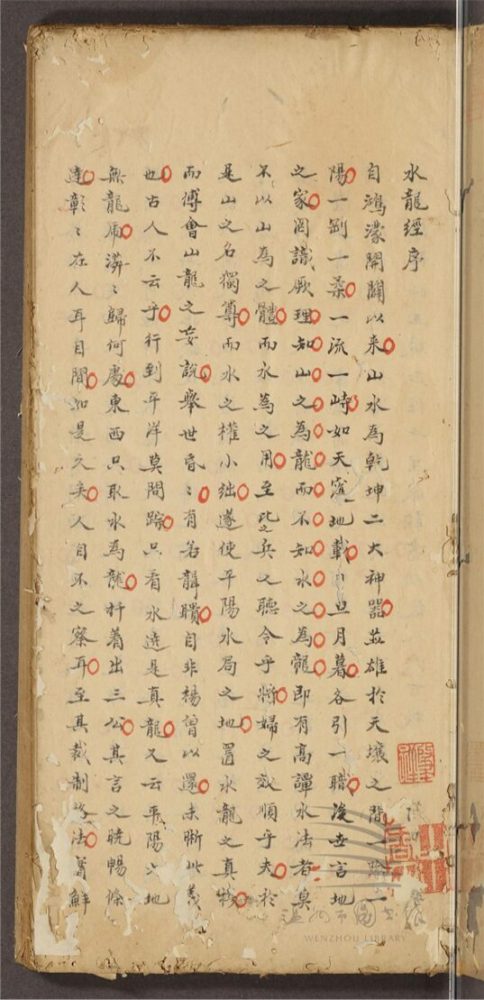 水龍經序
自鴻濛開闢以来山水為乾坤二大神器並雄於天壤之間一陰一
陽一剛一柔一流一峙如天窿地載日旦月暮各引一職後世言地
之家罔識厥理知山之為龍而不知水之為龍即有高譚水法者莫
不以山為之體而水為之用至比之兵之聽令乎將婦之效順乎夫於
是山之名獨尊而水之權小绌遂使平陽水局之地置水龍之真機
而傅會山龍之妄說舉世昏〻有若聾瞶自非楊曾以還未晰此義
也古人不云乎行到平洋莫問踪只看水遶是真龍又云平陽之地
無龍虎漭〻歸何處東西只取水為龍扦着出三公其言之曉暢條
達彰〻在人耳目間如是之人自不之察耳至其裁制之法畧鮮
温州市圖書館
WENZHOU LIBRARY